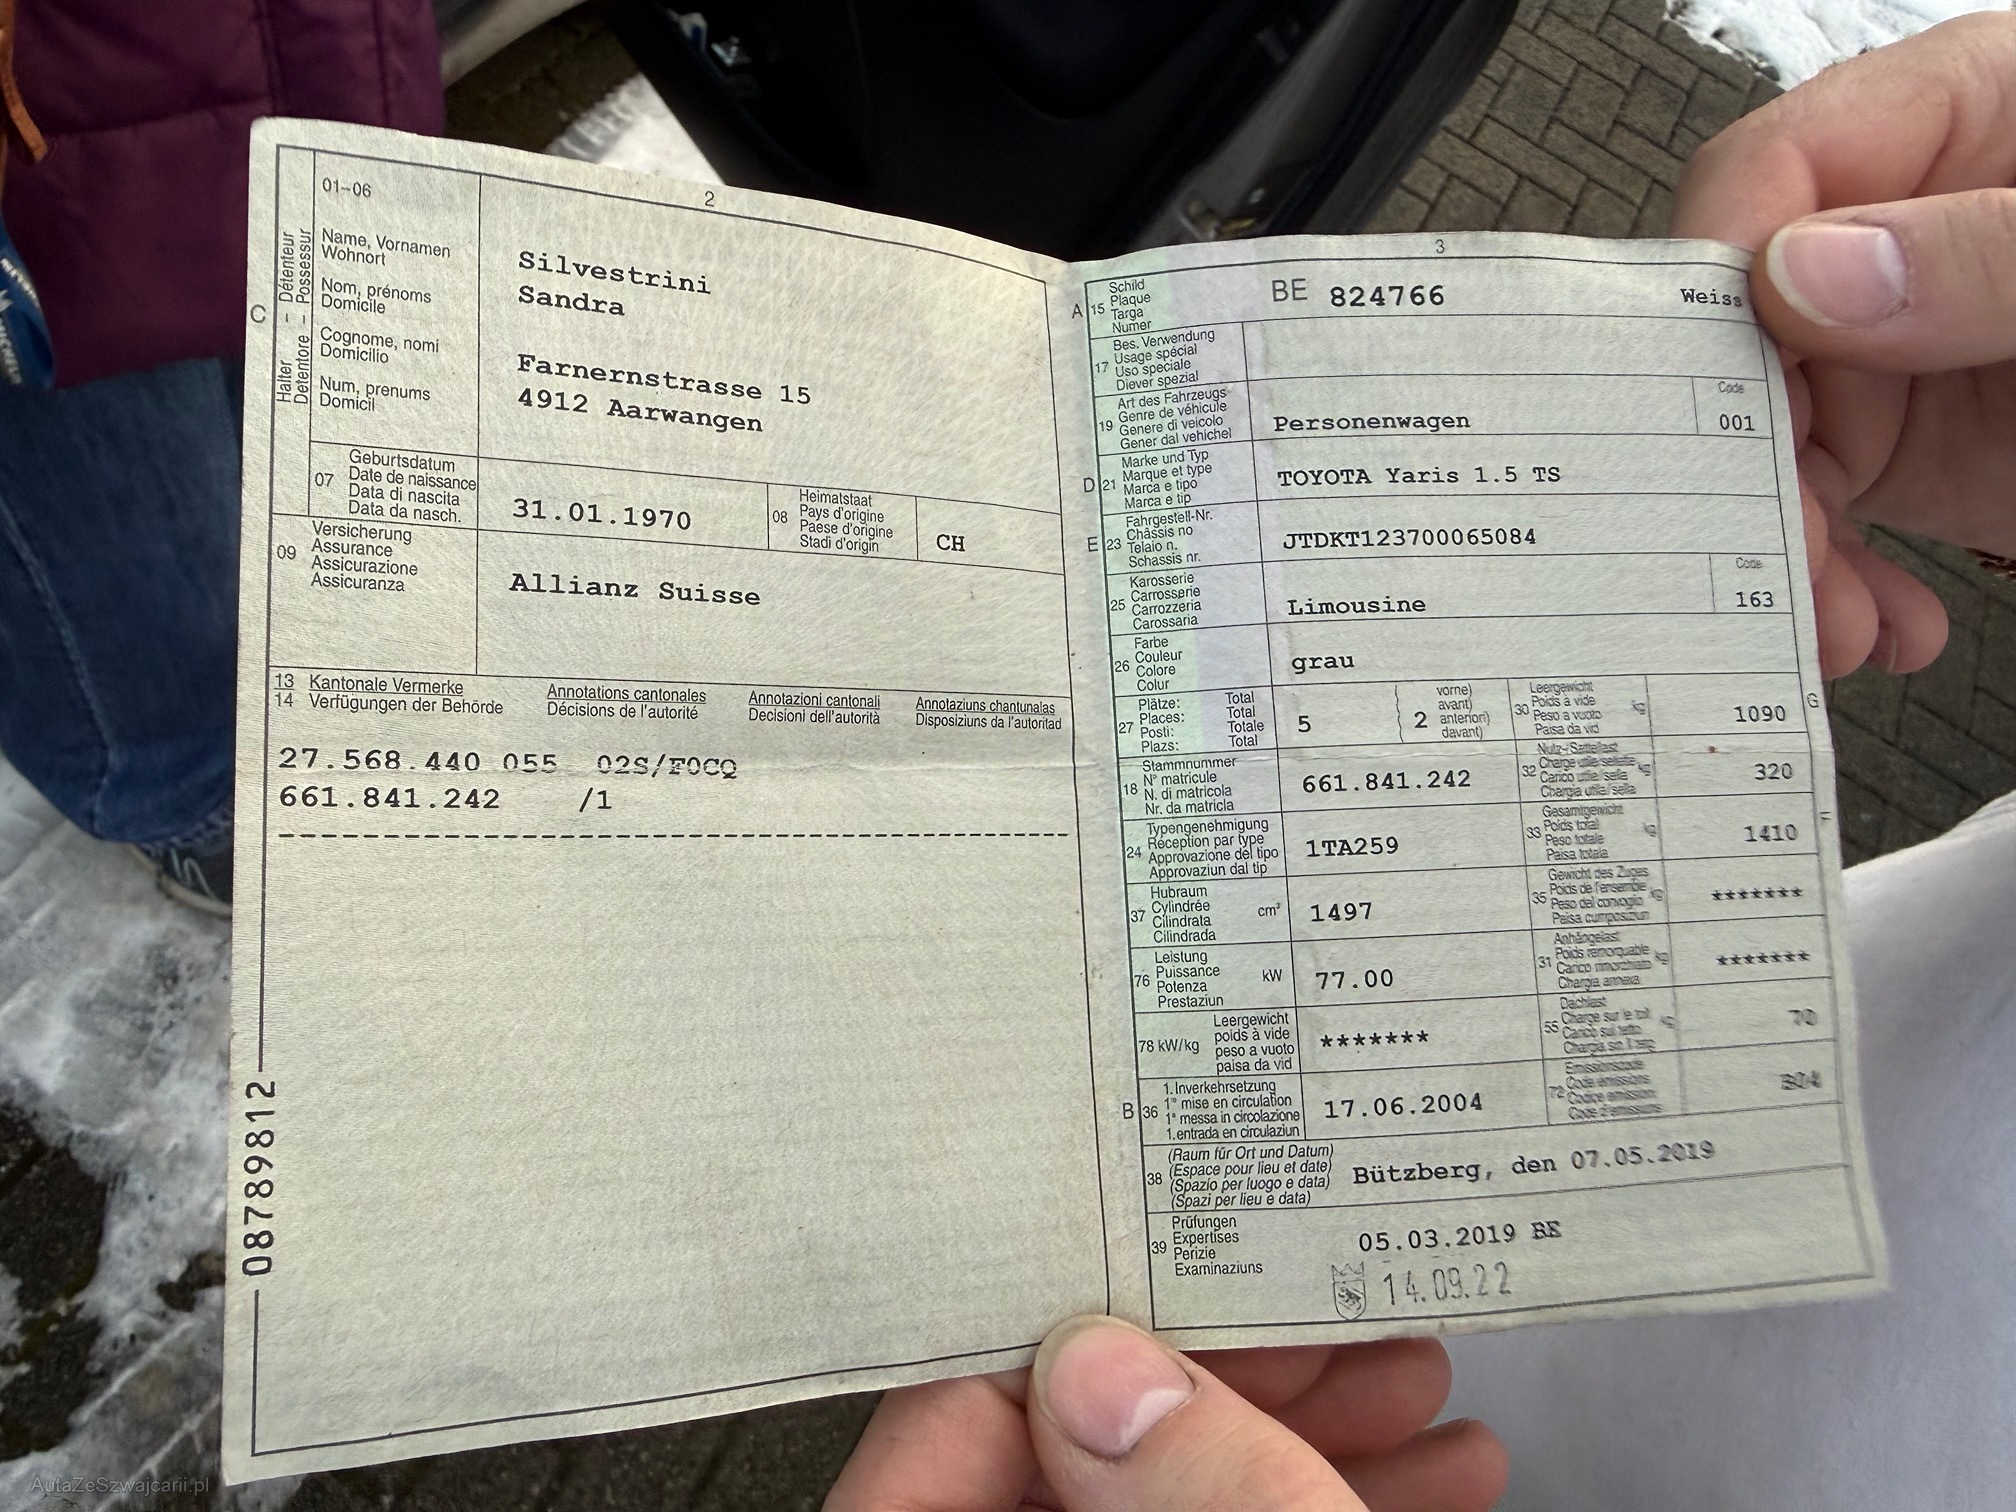 2
01–06
Halter – Détenteur
Detentore – Possessur
C
Name, Vornamen
Wohnort
Nom, prénoms
Domicile
Cognome, nomi
Domicilio
Num, prenums
Domicil
Silvestrini
Sandra
Farnernstrasse 15
4912 Aarwangen
07
Geburtsdatum
Date de naissance
Data di nascita
Data da nasch.
31.01.1970
08
Heimatstaat
Pays d'origine
Paese d'origine
Stadi d'origin
CH
09
Versicherung
Assurance
Assicurazione
Assicuranza
Allianz Suisse
13 Kantonale Vermerke Annotations cantonales Annotazioni cantonali Annotaziuns chantunalas
14 Verfügungen der Behörde Décisions de l'autorité Decisioni dell'autorità Disposiziuns da l'autoritad
27.568.440 055 02S/F0CQ
661.841.242 /1
08789812
3
A
15
Schild
Plaque
Targa
Numer
BE 824766 Weiss
17
Bes. Verwendung
Usage spécial
Uso speciale
Diever spezial
19
Art des Fahrzeugs
Genre de véhicule
Genere di veicolo
Gener dal vehichel
Personenwagen
Code
001
D
21
Marke und Typ
Marque et type
Marca e tipo
Marca e tip
TOYOTA Yaris 1.5 TS
E
23
Fahrgestell-Nr.
Châssis no
Telaio n.
Schassis nr.
JTDKT123700065084
25
Karosserie
Carrosserie
Carrozzeria
Carossaria
Limousine
Code
163
26
Farbe
Couleur
Colore
Colur
grau
27
Plätze: Total
Places: Total
Posti: Totale
Plazs: Total
5
2
vorne)
avant)
anteriori)
davant)
30
Leergewicht
Poids à vide
Peso a vuoto
Paisa da vid
kg
1090
G
18
Stammnummer
N° matricule
N. di matricola
Nr. da matricla
661.841.242
32
Nutz-/Sattellast
Charge utile/sellette
Carico utile/sella
Chargia utila/sella
kg
320
24
Typengenehmigung
Réception par type
Approvazione del tipo
Approvaziun dal tip
1TA259
33
Gesamtgewicht
Poids total
Peso totale
Paisa totala
kg
1410
F
37
Hubraum
Cylindrée
Cilindrata
Cilindrada
cm³
1497
35
Gewicht des Zuges
Poids de l'ensemble
Peso del convoglio
Paisa cumposiziun
kg
*******
76
Leistung
Puissance
Potenza
Prestaziun
kW
77.00
31
Anhängelast
Poids remorquable
Carico rimorchiato
Chargia annexa
kg
*******
78 kW/kg
Leergewicht
poids à vide
peso a vuoto
paisa da vid
*******
55
Dachlast
Charge sur le toit
Carico sul tetto
kg
70
B
36
1.Inverkehrsetzung
1re mise en circulation
1a messa in circolazione
1.entrada en circulaziun
17.06.2004
72
Emissionscode
Code émissions
Codice emissioni
Code d'emissiuns
B04
38
(Raum für Ort und Datum)
(Espace pour lieu et date)
(Spazio per luogo e data)
(Spazi per lieu e data)
Bützberg, den 07.05.2019
39
Prüfungen
Expertises
Perizie
Examinaziuns
05.03.2019 BE
14.09.22
AutaZeSzwajcarii.pl